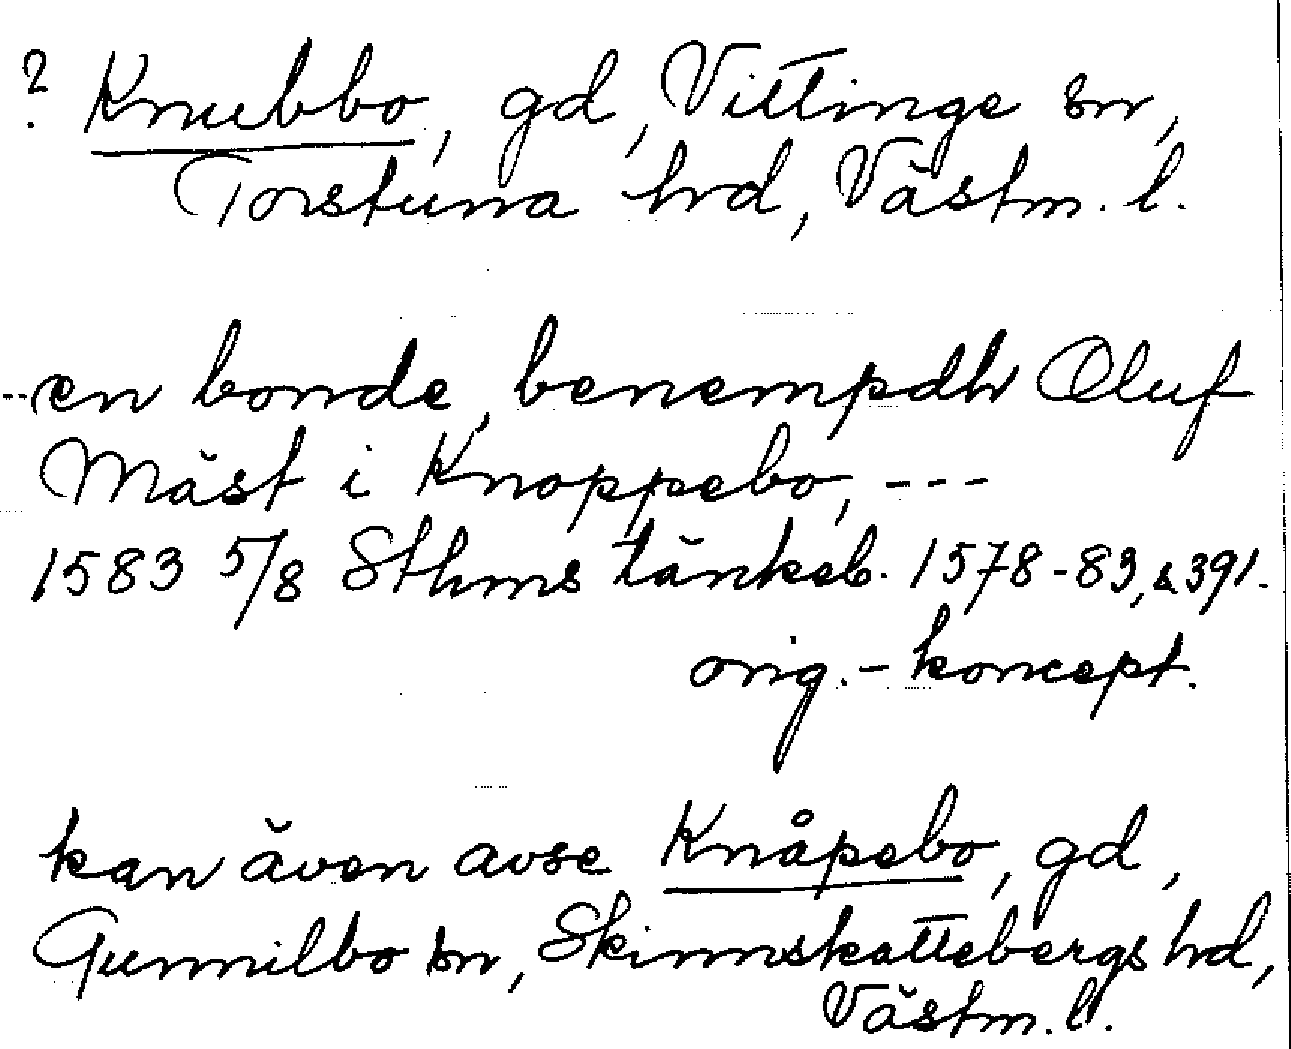 ? Knubbo, gd, Vittinge sn,
Torstuna hrd, Västm. l.
--en bonde, benempdh Oluf
Mäst i Knoppebo, ---
1583 5/8 Sthms tänkeb. 1578-83, s 391.
orig.-koncept.
kan även avse Knåpebo, gd,
Gunnilbo sn, Skinnskattebergs hrd,
Västm. l.